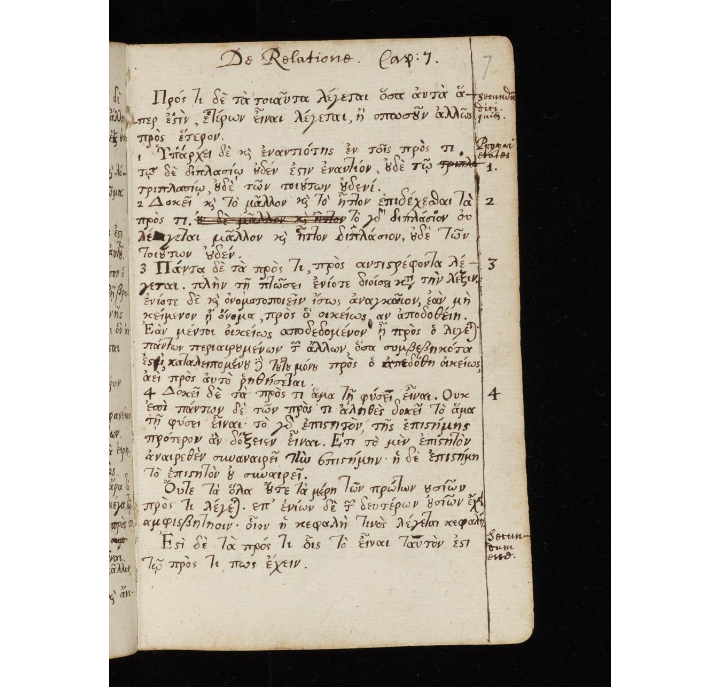 De Relatione. Cap: 7.
7
Πρός τι δὲ τὰ τοιαῦτα λέγεται ὅσα αὐτὰ ἅ-
περ ἐϛὶν, ἑτέρων εἶναι λέγεται, ἢ ὁπωσȣ͂ν ἄλλως
πρὸς ἕτερον.
secundum
dici
1 Ὑπάρχει δὲ κỳ ἐναντιότης ἐν τοῖς πρὸς τι.
τῷ δὲ διπλασίῳ ȣ̓δέν ἐϛιν ἐναντίον, ȣ̓δὲ τῷ
τριπλασίῳ, ȣ̓δὲ τῶν τοιȣ́των ȣ̓δενί.
1.
2 Δοκεῖ κỳ τὸ μᾶλλον κỳ τὸ ἧττον ἐπιδέχεσθαι τὰ
πρὸς τι. τὸ γὸ διπλάσιον ȣ
λέγεται μᾶλλον κỳ ἧττον διπλάσιον, ȣ̓δὲ τῶν
τοιȣ́των ȣ̓δέν.
2
3 Πάντα δὲ τὰ πρὸς τι, πρὸς ἀντιϛρέφοντα λέ-
γεται. πλὴν τῇ πτώσει ἐνίοτε διοίσει κỳ τὴν λέξιν,
ἐνίοτε δὲ κỳ ὀνοματοποιεῖν ἴσως ἀναγκαῖον, ἐὰν μὴ
κείμενον ᾖ ὄνομα, πρὸς ὃ οἰκείως ἂν ἀποδοθείη.
Ἐὰν μέντοι οἰκείως ἀποδεδομένον ᾖ πρὸς ὃ λέγε)
πάντων περιαιρȣμένων τ͂ ἄλλων, ὅσα συμβεβηκότα
ἐϛὶ, καταλειπομένȣ τȣ́τȣ μόνȣ πρὸς ὃ ἀπεδόθη οἰκείως,
ἀεὶ πρὸς αὐτὸ ῥηθήσεται.
3
4 Δοκεῖ δὲ τὰ πρὸς τι ἅμα τῇ φύσει εἶναι. Οὐκ
ἐπὶ πάντων δὲ τῶν πρὸς τι ἀληθὲς δοκεῖ τὸ ἅμα
τῇ φύσει εἶναι· τὸ γὸ ἐπιϛητὸν, τῆς ἐπιϛήμης
πρότερον ἂν δόξειεν εἶναι. Ἔτι τὸ μὲν ἐπιϛητὸν
ἀναιρεθὲν συναναιρεῖ τὴν ἐπιϛήμην· ἡ δὲ ἐπιϛήμη
τὸ ἐπιϛητὸν ȣ̓ συναιρεῖ.
4
Οὔτε τὰ ὅλα ȣ̓́τε τὰ μέρη τῶν πρώτων ȣ̓σιῶν
πρὸς τι λέγε). ἐπ' ἐνίων δὲ τ͂ δευτέρων ȣ̓σιῶν ἔχει
ἀμφισβήτησιν· οἷον ἡ κεφαλὴ τινὸς λέγεται κεφαλή.
Ἔϛι δὲ τὰ πρός τι οἷς τὸ εἶναι ταὐτὸν ἐϛι
τῷ πρὸς τι πως ἔχειν.
Secun-
dum
esse.